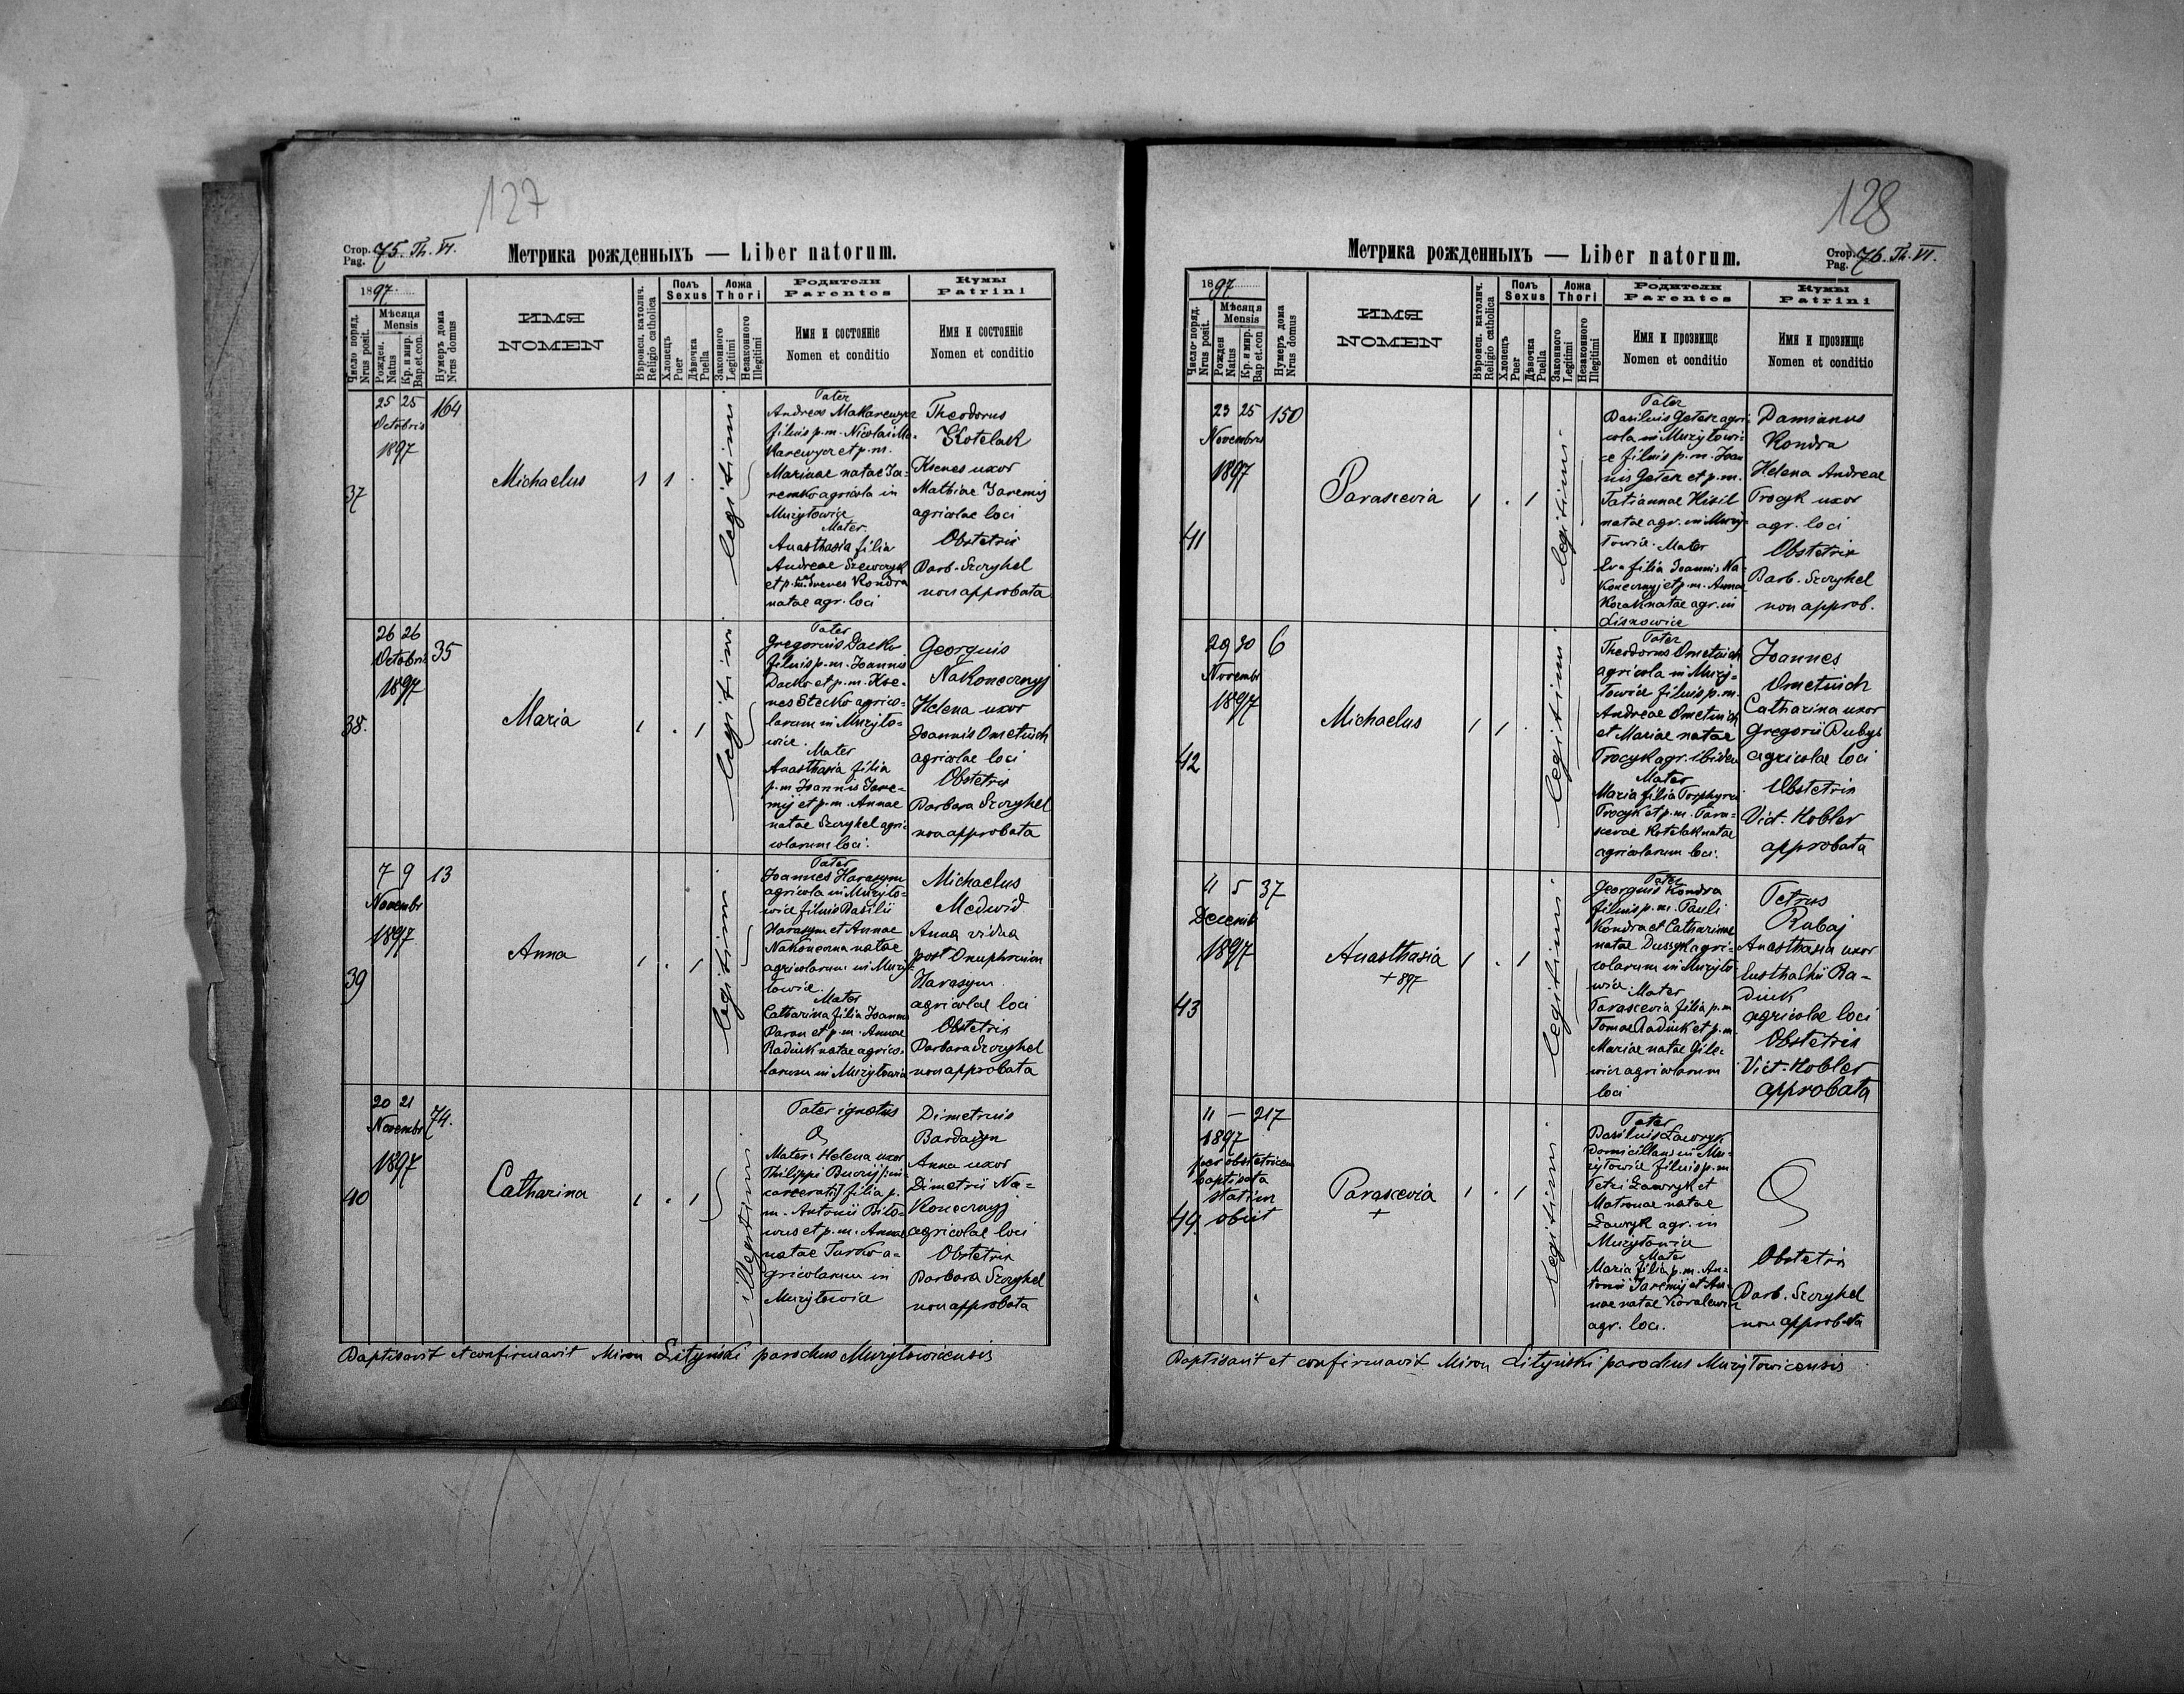 127
Стор. Pag. 75. Th. VI.
Метрика рожденныхъ — Liber natorum.
1897
Число поряд. Nrus posit.
Мѣсяця Mensis
Рожден. Natus
Кр. и мир. Bap.et.con.
Нумеръ дома Nrus domus
ИМЯ
NOMEN
Вѣроисп. католич. Religio catholica
Полъ Sexus
Хлопецъ Puer
Дѣвочка Puella
Ложа Thori
Законного Legitimi
Незаконного Illegitimi
Родители
Parentes
Имя и состояніе
Nomen et conditio
Кумы
Patrini
Имя и состояніе
Nomen et conditio
37
25 25
Octobris
1897
164
Michaelus
1 1 .
legitimi
Pater
Andreas Makarewycz
filius p.m. Nicolai Ma-
karewycz et p.m.
Marinae natae Ja-
remko agricola in
Mużyłowice
Mater
Anasthasia filia
Andreae Szewczyk
et p.m. Irenes Kondra
natae agr. loci
Theodorus
Kotelak
Ksenes uxor
Mathiae Jaremij
agricolae loci
Obstetrix
Barb. Szozykel
non approbata
38.
26 26
Octobris
1897
35
Maria
1 . 1
legitimi
Pater
Gregorius Dacko
filius p.m. Joannis
Dacko et p.m. Kse-
nes Stecko agrico-
larum in Mużyło-
wice.
Mater
Anasthasia filia
p.m Joannis Jare-
mij et p.m. Annae
natae Szozykel agri-
colarum loci.
Georgius
Nakonecznyj
Helena uxor
Joannis Ometiuch
agricolae loci
Obstetrix
Barbara Szozykel
non approbata
39
7 9
Novembr
1897
13
Anna
1 . 1
legitimi
Pater
Joannes Harasym
agricola in Mużyło-
wice filius Basilii
Harasym et Annae
Nakoneczna natae
agricolarum in Muży-
łowice.
Mater
Catharina filia Joannis
Baran et p.m. Annae
Radiuk natae agrico-
larum in Mużyłowice
Michaelus
Medwid
Anna vidua
post Onuphrium
Harasym
agricolae loci
Obstetrix
Barbara Szozykel
non approbata
40
20 21
Novembr
1897
74.
Catharina
1 . 1
illegitimi
Pater ignotus
Mater: Helena uxor
Philippi
carcerati filia p.
m. Antonii
et p.m. Annae
natae Turko a-
gricolarum in
Mużyłowice
Dimetrius
Anna uxor
Dimetrii Na-
konecznyj
agricolae loci
Obstetrix
Barbara Szozykel
non approbata
Baptisavit et confirmavit Miron Lityński parochus Mużyłowicensis
128
Стор. Pag. 76. Th. VI.
Метрика рожденныхъ — Liber natorum.
1897
Число поряд. Nrus posit.
Мѣсяця Mensis
Рожден Natus
Кр. и мир. Bap et.con
Нумеръ дома Nrus domus
ИМЯ
NOMEN
Вѣроисп. католич. Religio catholica
Полъ Sexus
Хлопецъ Puer
Дѣвочка Puella
Ложа Thori
Законного Legitimi
Незаконного Illegitimi
Родители
Parentes
Имя и прозвище
Nomen et conditio
Кумы
Patrini
Имя и прозвище
Nomen et conditio
41
23 25
Novembris
1897
150
Parascevia
1 . 1
legitimi
Pater
Basilius Getek agri-
cola in Mużyłowi-
ce filius p.m. Joan
nis Getek et p.m.
Tatiannae Kizil
natae agr. in Muży-
łowice. Mater
Eva filia Joannis Na-
konecznyj et p.m. Annae
Kozak natae agr. in
Lisnowice
Damianus
Kondra
Helena Andreae
Trocyk uxor
agr. loci
Obstetrix
Barb. Szozykel
non approb.
42
29 30
Novembr
1897
6
Michaelus
1 1 .
legitimi
Pater
Theodorus Ometiuch
agricola in Muży-
łowice filius p.m.
Andreae Ometiuch
et Mariae natae
Trocyk agr. ibidem
Mater
Maria filia Porphyrii
Trocyk et p.m. Para-
scevae Kotelak natae
agricolarum loci.
Joannes
Ometiuch
Catharina uxor
Gregorii
agricolae loci
Obstetrix
Vict. Kobler
approbata
43
4 5
Decemb
1897
37
Anasthasia
+ 897
1 . 1
legitimi
Pater
Georgius Kondra
filius p.m. Pauli
Kondra et Catharinae
natae agri-
colarum in Mużyło
wice. Mater
Parascevia filia p.m
Tomae Radiuk et p.m.
Mariae natae Gile-
wicz agricolarum
loci
Petrus
Rubaj
Anasthasia uxor
Eusthachii Ra-
diuk
agricolae loci
Obstetrix
Vict. Kobler
approbata
49.
11 — 217
1897
per obstetricem
baptisata
statim
obiit
Parascevia
+
1 . 1
legitimi
Pater
Basilius Ławryk
domicilians in Mu-
żyłowice filius p.m.
Petri Ławryk et
Matronae natae
Ławryk agr. in
Mużyłowice
Mater
Maria filia p.m. An-
tonii Jaremij et An-
nae natae Kowalewicz
agr. loci.
Obstetrix
Barb. Szozykel
non approbata
Baptisavit et confirmavit Miron Lityński parochus Mużyłowicensis